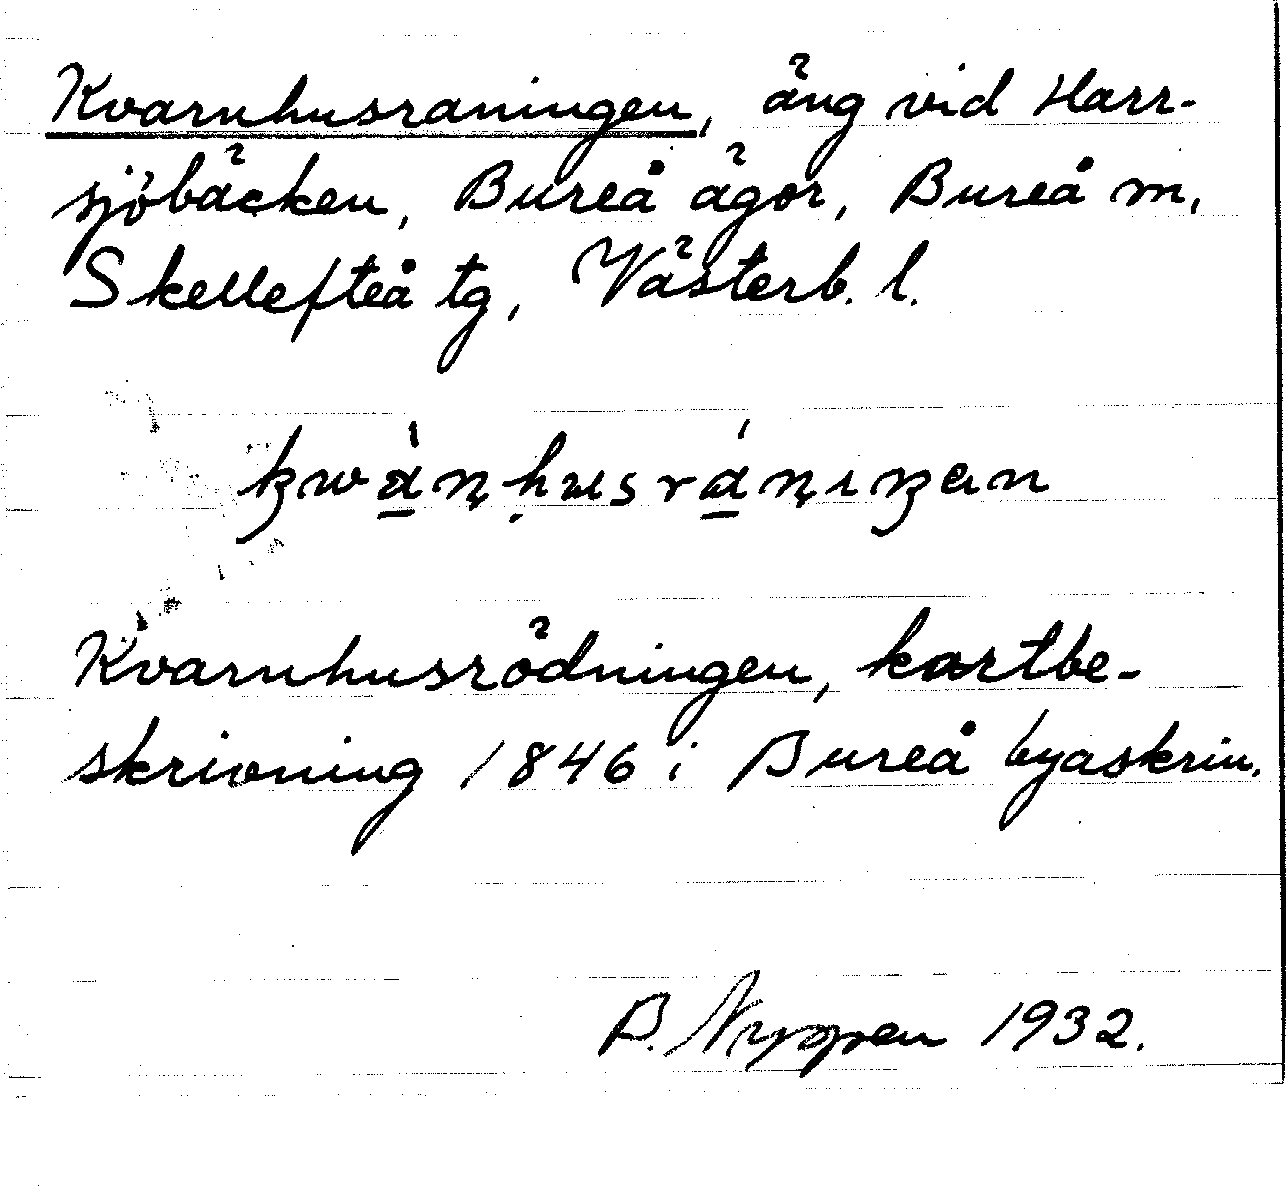 Kvarnhusraningen, äng vid Harr-
sjöbäcken, Bureå ägor, Bureå m,
Skellefteå tg, Västerb. l.
Kvarnhusrödningen, kartbe-
skrivning 1846 i Bureå byaskrin.
B. Nyppen 1932.